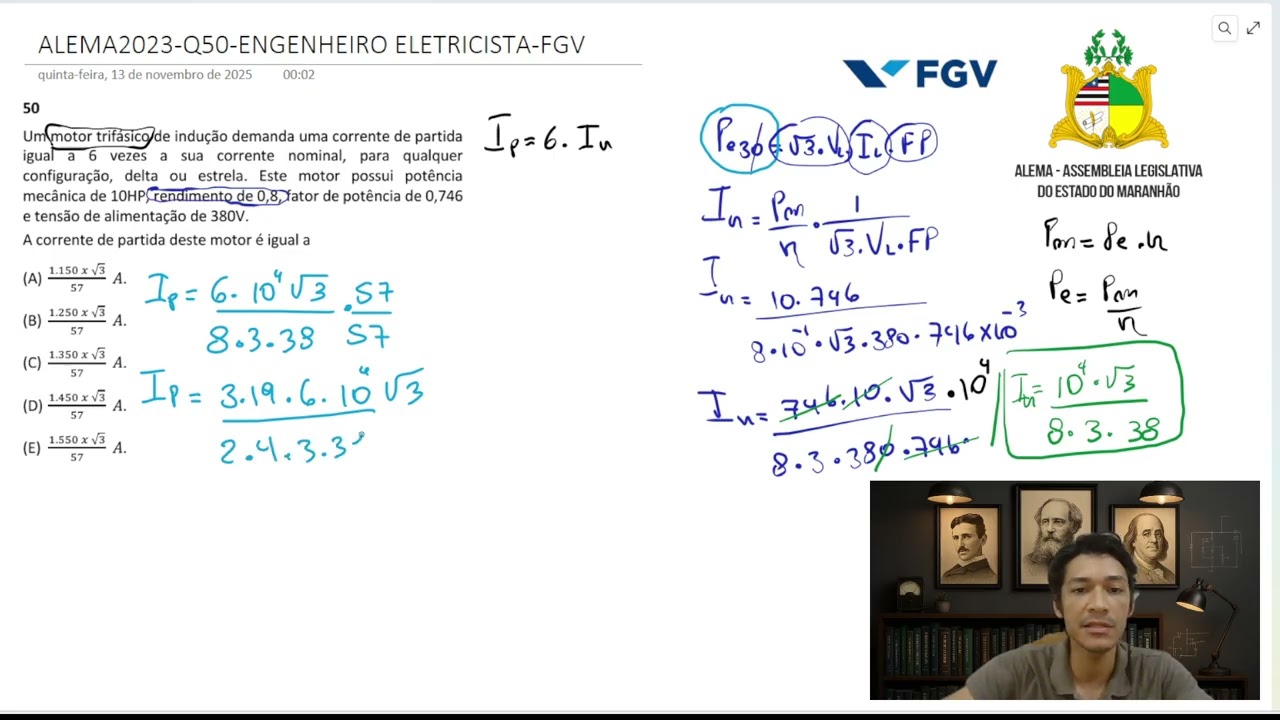 ALEMA2023-Q50-ENGENHEIRO ELETRICISTA-FGV
quinta-feira, 13 de novembro de 2025 00:02
50
Um motor trifásico de indução demanda uma corrente de partida
igual a 6 vezes a sua corrente nominal, para qualquer
configuração, delta ou estrela. Este motor possui potência
mecânica de 10HP, rendimento de 0,8, fator de potência de 0,746
e tensão de alimentação de 380V.
A corrente de partida deste motor é igual a
(A) 1.150 x √3 / 57 A.
(B) 1.250 x √3 / 57 A.
(C) 1.350 x √3 / 57 A.
(D) 1.450 x √3 / 57 A.
(E) 1.550 x √3 / 57 A.
Ip = 6. In
Ip = 6. 10⁴ √3 . 57
8.3.38 57
Ip = 3.19.6.10⁴ √3
2.4.3.3
FGV
Pe3ϕ = √3.VL.IL.FP
In = Pm / n . 1 / √3.VL.FP
In = 10.746
8.10⁻¹.√3.380.746x10⁻³
In = 746.10.√3.10⁴
8.3.380.746.
In = 10⁴.√3
8.3.38
ALEMA - ASSEMBLEIA LEGISLATIVA
DO ESTADO DO MARANHÃO
Pm = Pe.n
Pe = Pm / n